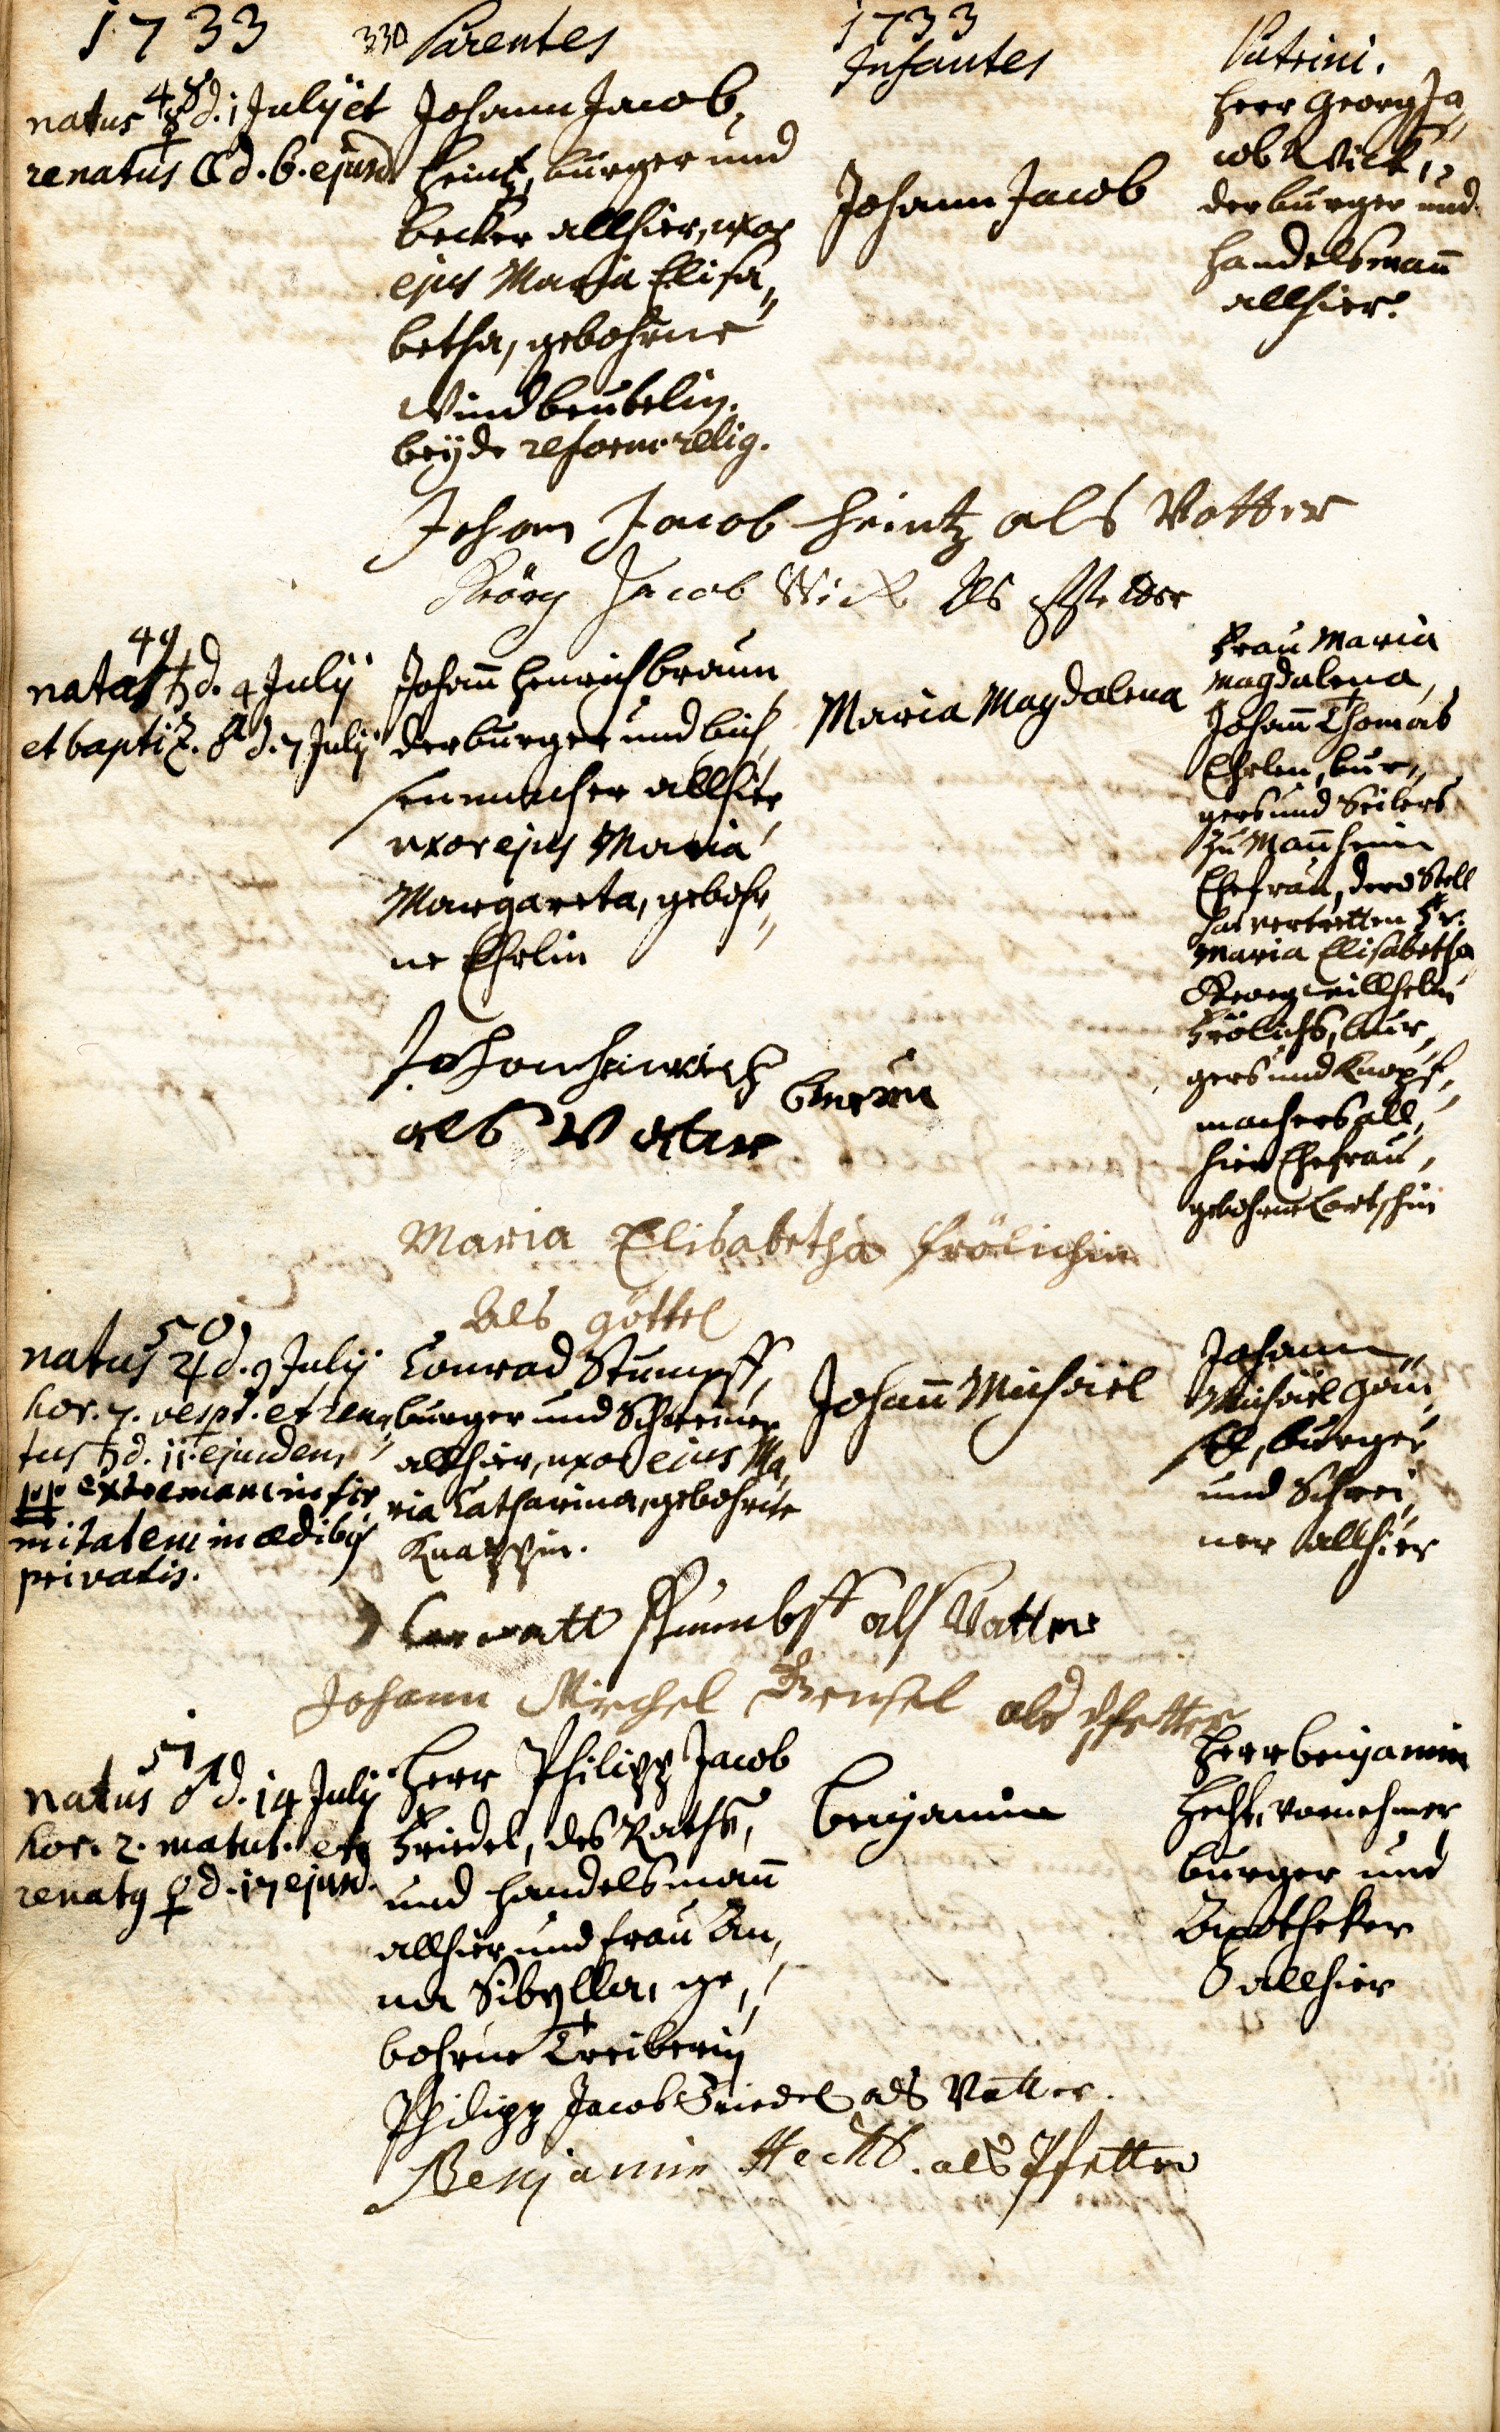 1733
330 Parentes
1733
Infantes
Patrini.
48
natus ☿ d. 1 Julij et
renatus ☾ d. 6. ejusd.
Johann Jacob
Heintz, burger und
becker allhier, uxor
ejus Maria Elisa„
betha, gebohrne
Windbeutelin.
beyde reform. relig.
Johann Jacob
Herr Georg Ja„
cob Wick,
der burger und
handelsmañ
allhier.
Johann Jacob Heintz als Vatter
Georg Jacob Wick als Pfetter
49
nata ♄ d. 4 Julij
et baptiz. ♂ d. 7 Julij
Johañ Henrich braun
der burger und büch„
senmacher allhier
uxor ejus Maria
Margareta, gebohr„
ne Ehrlin
Maria Magdalena
Frau Maria
Magdalena,
Johañ Thomas
Ehrlen, bur„
gers und Seilers
zu Mañheim
Ehefrau, dere Stell
hat vertretten Fr.
Maria Elisabetha
Georg Willhelm
Frölichs, bur„
gers und Knopf„
machers all„
hier Ehefrau,
gebohrne
Johan henrich braun
als Vatter
Maria Elisabetha Frölichin
als göttel
50
natus ♃ d. 9 Julij
hor. 7. vesp. et rena„
tus ♄ d. 11. ejusdem
pp extremam infir„
mitatem in ædibus
privatis.
Conrad Stumpff,
burger und Schreiner
allhier, uxor ejus Ma„
ria Catharina, gebohrne
Knappin.
Johañ Michäel
Johann
Michäel Gen„
sel, burger
und Schrei„
ner allhier
Conratt Stumbff als Vatter
Johann Michel Gensel als Pfetter
51
natus ♂ d. 14 Julij
hor. 2. matut. et
renatus ♀ d. 17 ejusd.
Herr Philipp Jacob
Friedel, des Raths,
und handelsmañ
allhier und frau An„
na Sibylla, ge„
bohrne Treiberin
Benjamin
Herr Benjamin
Hecht, vornehmer
burger und
Apotheker
allhier
Philipp Jacob Friedel als Vatter.
Benjamin Hecht. als Pfetter